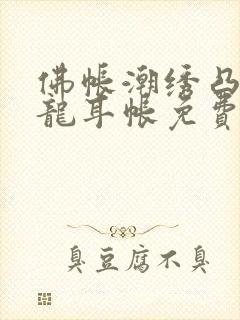 佛帐潮绣凸
龍耳帐免費
臭豆腐不臭